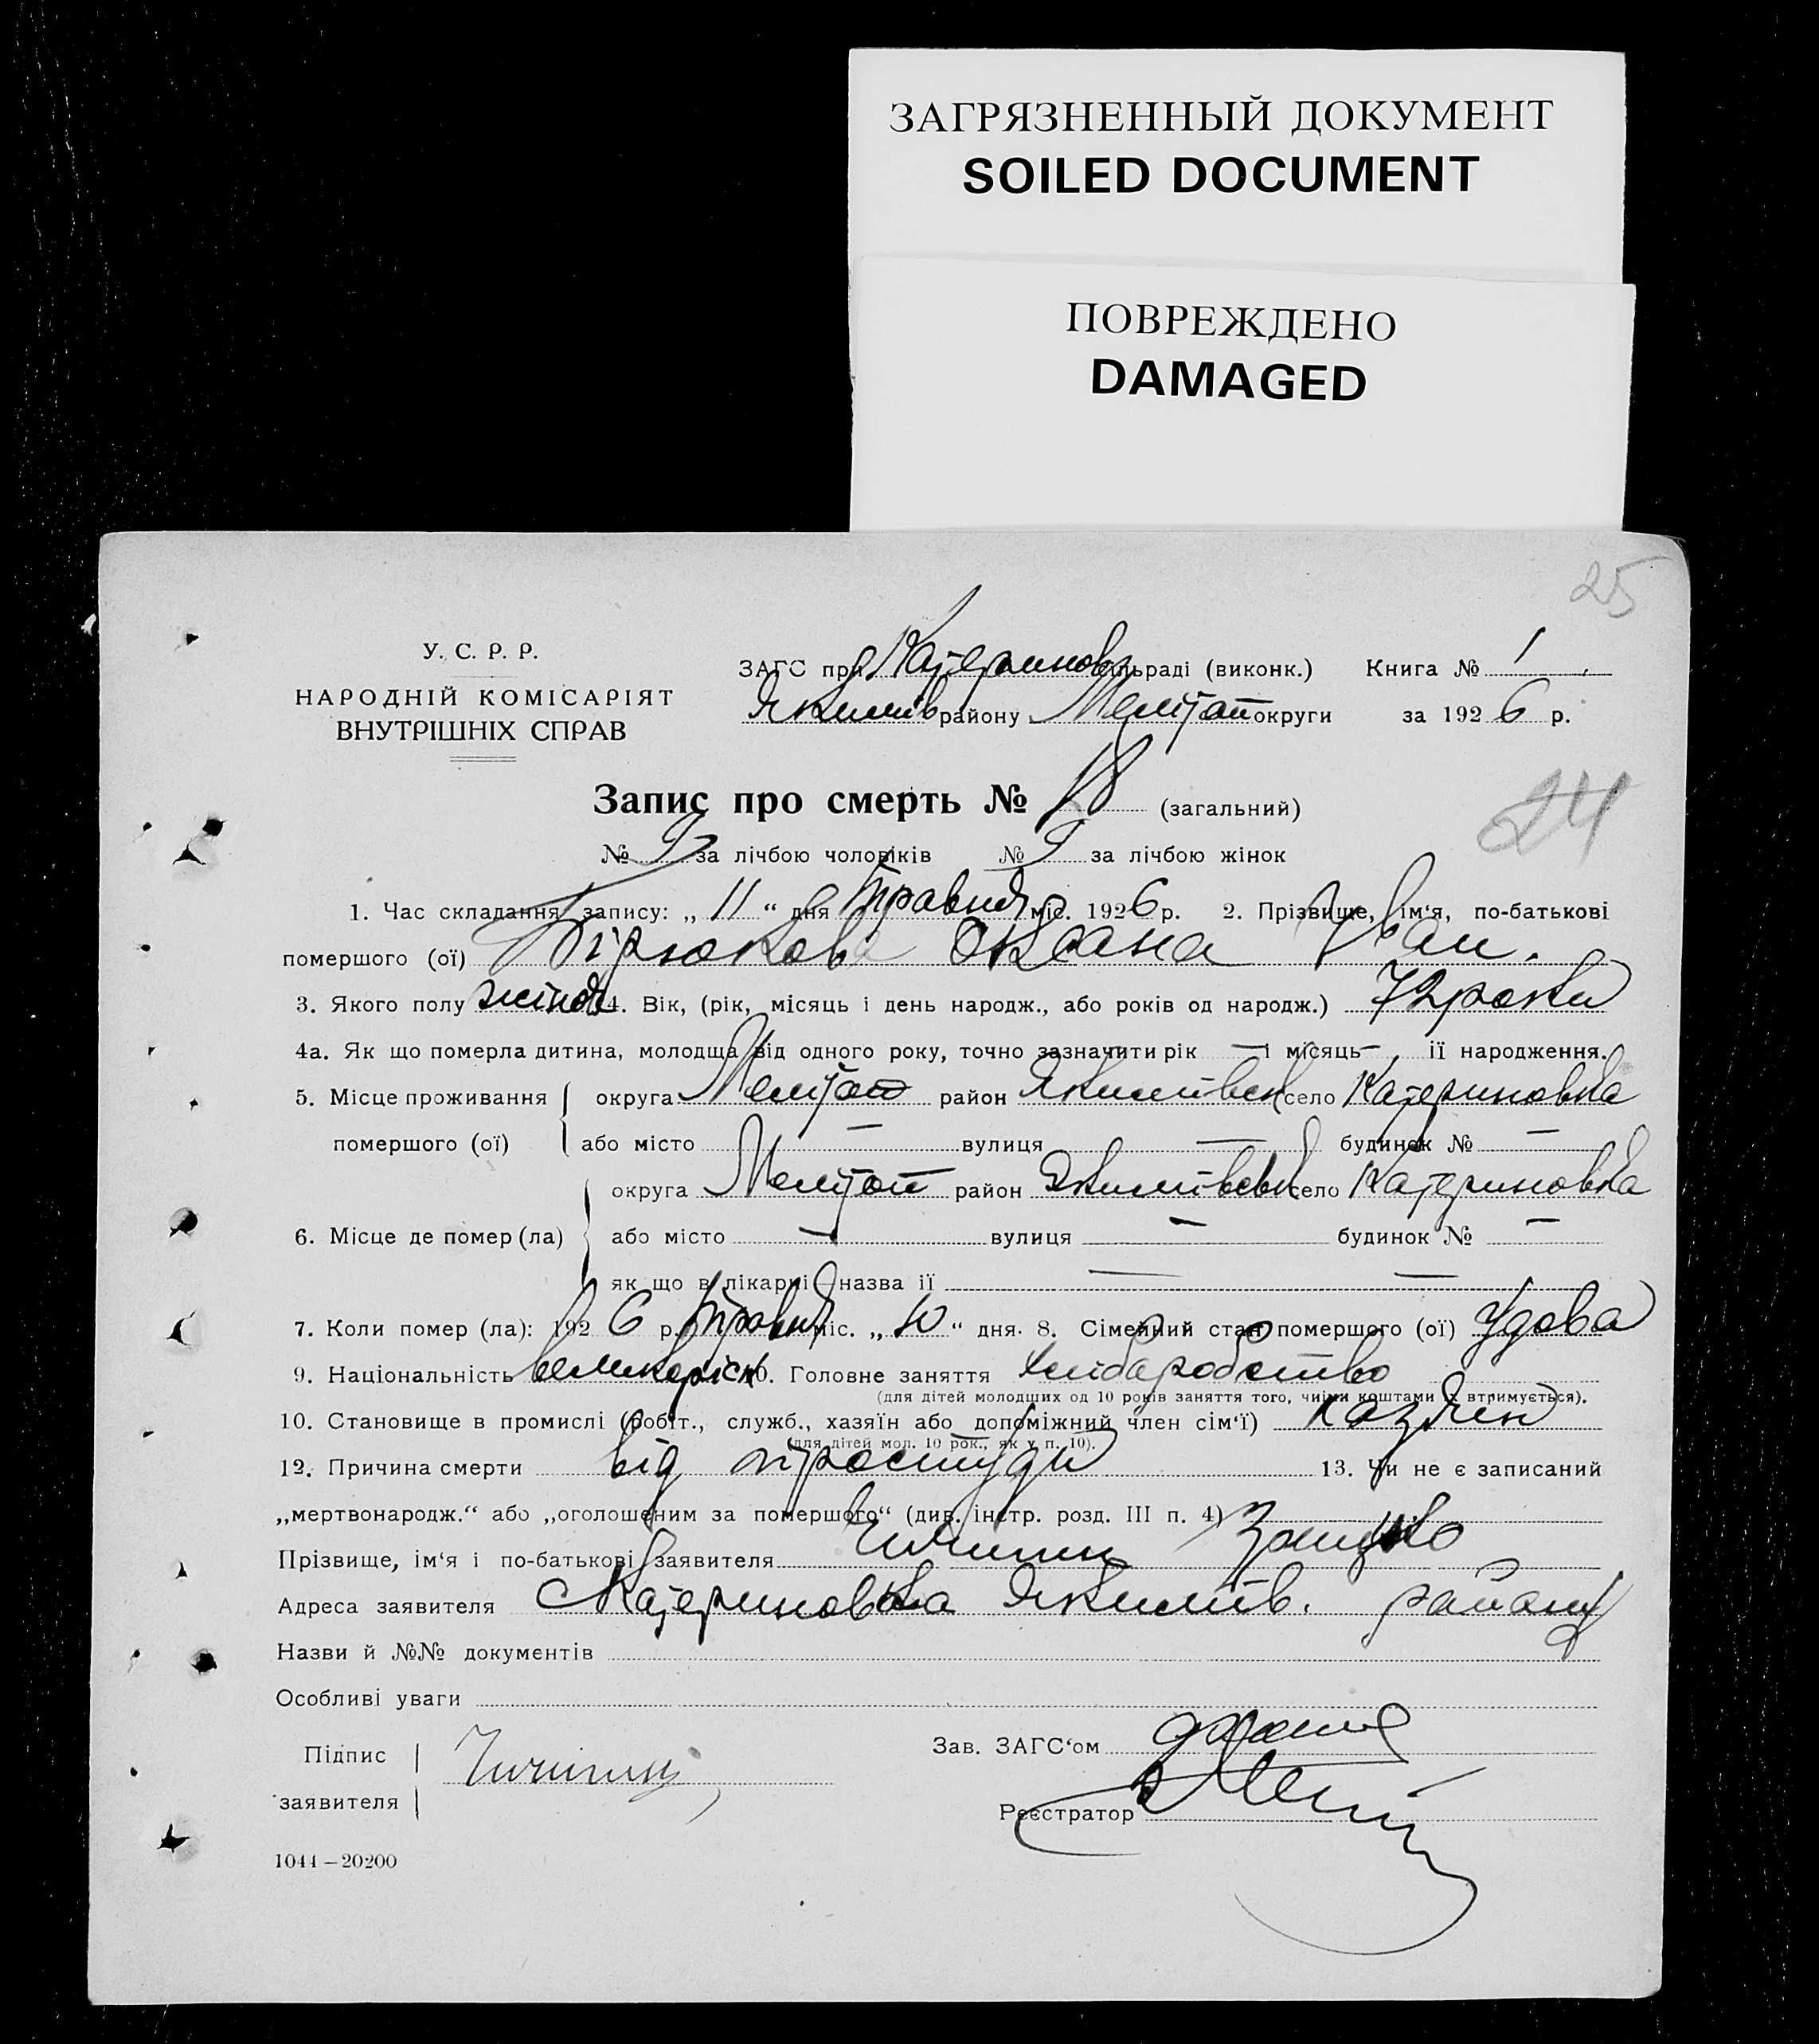 ЗАГРЯЗНЕННЫЙ ДОКУМЕНТ
SOILED DOCUMENT
ПОВРЕЖДЕНО
DAMAGED
25
У. С. Р. Р.
НАРОДНІЙ КОМІСАРІЯТ
ВНУТРІШНІХ СПРАВ
ЗАГС при Катеринов сільраді (виконк.) Книга № 1
Якимів району Меліт́оп округи за 1926 р.
Запис про смерть № 18 (загальний)
24
№ 9 за лічбою чоловіків № 9 за лічбою жінок
1. Час складання запису: „ 11 “ дня Травня міс. 1926 р. 2. Прізвище, ім‘я, по-батькові
помершого (ої) Бірюкова Оксана Іван.
3. Якого полу жіноч 4. Вік, (рік, місяць і день народж., або років од народж.) 72 роки
4а. Як що померла дитина, молодща від одного року, точно зазначити рік — і місяць — її народження.
5. Місце проживання помершого (ої) округа Мелітоп район Якимівськ село Катериновка
або місто — вулиця — будинок № —
6. Місце де помер (ла) округа Мелітоп район Якимівськ село Катериновка
або місто — вулиця — будинок № —
як що в лікарні—назва її — —
7. Коли помер (ла): 1926 р. Травня міс. „ 10 “ дня. 8. Сімейний стан помершого (ої) Удова
9. Національність великоросіс 10. Головне заняття хліборобство
(для дітей молодших од 10 років заняття того, чиїми коштами їх втримується).
10. Становище в промислі (робіт., служб., хазяїн або допоміжний член сім‘ї)
(для дітей мол. 10 рок., як у п. 10).
12. Причина смерти від простуди 13. Чи не є записаний
„мертвонародж.“ або „оголошеним за помершого“ (див. інстр. розд. III п. 4)
Прізвище, ім‘я і по-батькові заявителя
Адреса заявителя Катериновка Якимів. району
Назви й №№ документів
Особливі уваги
Підпис заявителя
Зав. ЗАГС‘ом
Реєстратор
1044—20200